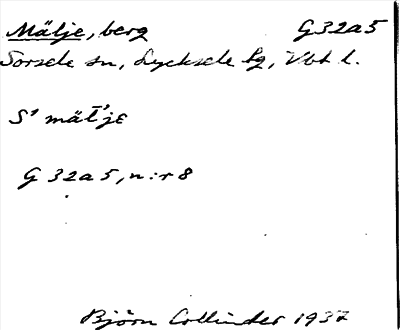 Mälje, berg G32a5
Sorsele sn, Lycksele lg, Vbt l.
S' mät'jɛ
G 32a5, n:r 8
Björn Collinder 1937